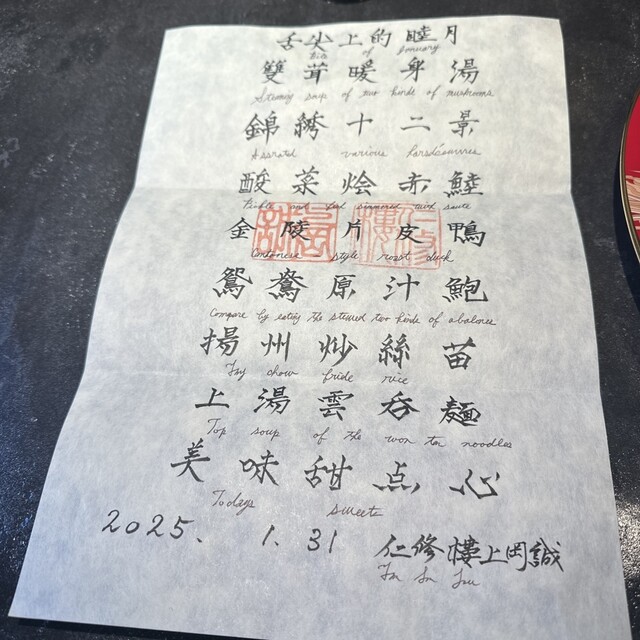 舌尖上的睦月
of January
雙茸暖身湯
Steamy soup of two kinds of mushrooms
錦繡十二景
Assorted various horsd'oeuvres
酸菜烩赤鯥
Pickle and Red simmered
金陵片皮鴨
Cantonese - style roast duck
鴛鴦原汁鮑
Compare by eating the stewed two kinds of abalones
揚州炒絲苗
chow fride rice
上湯雲吞麺
Top soup of the won ton noodles
美味甜点心
Todays sweets
2025. 1. 31 仁修樓上岡誠